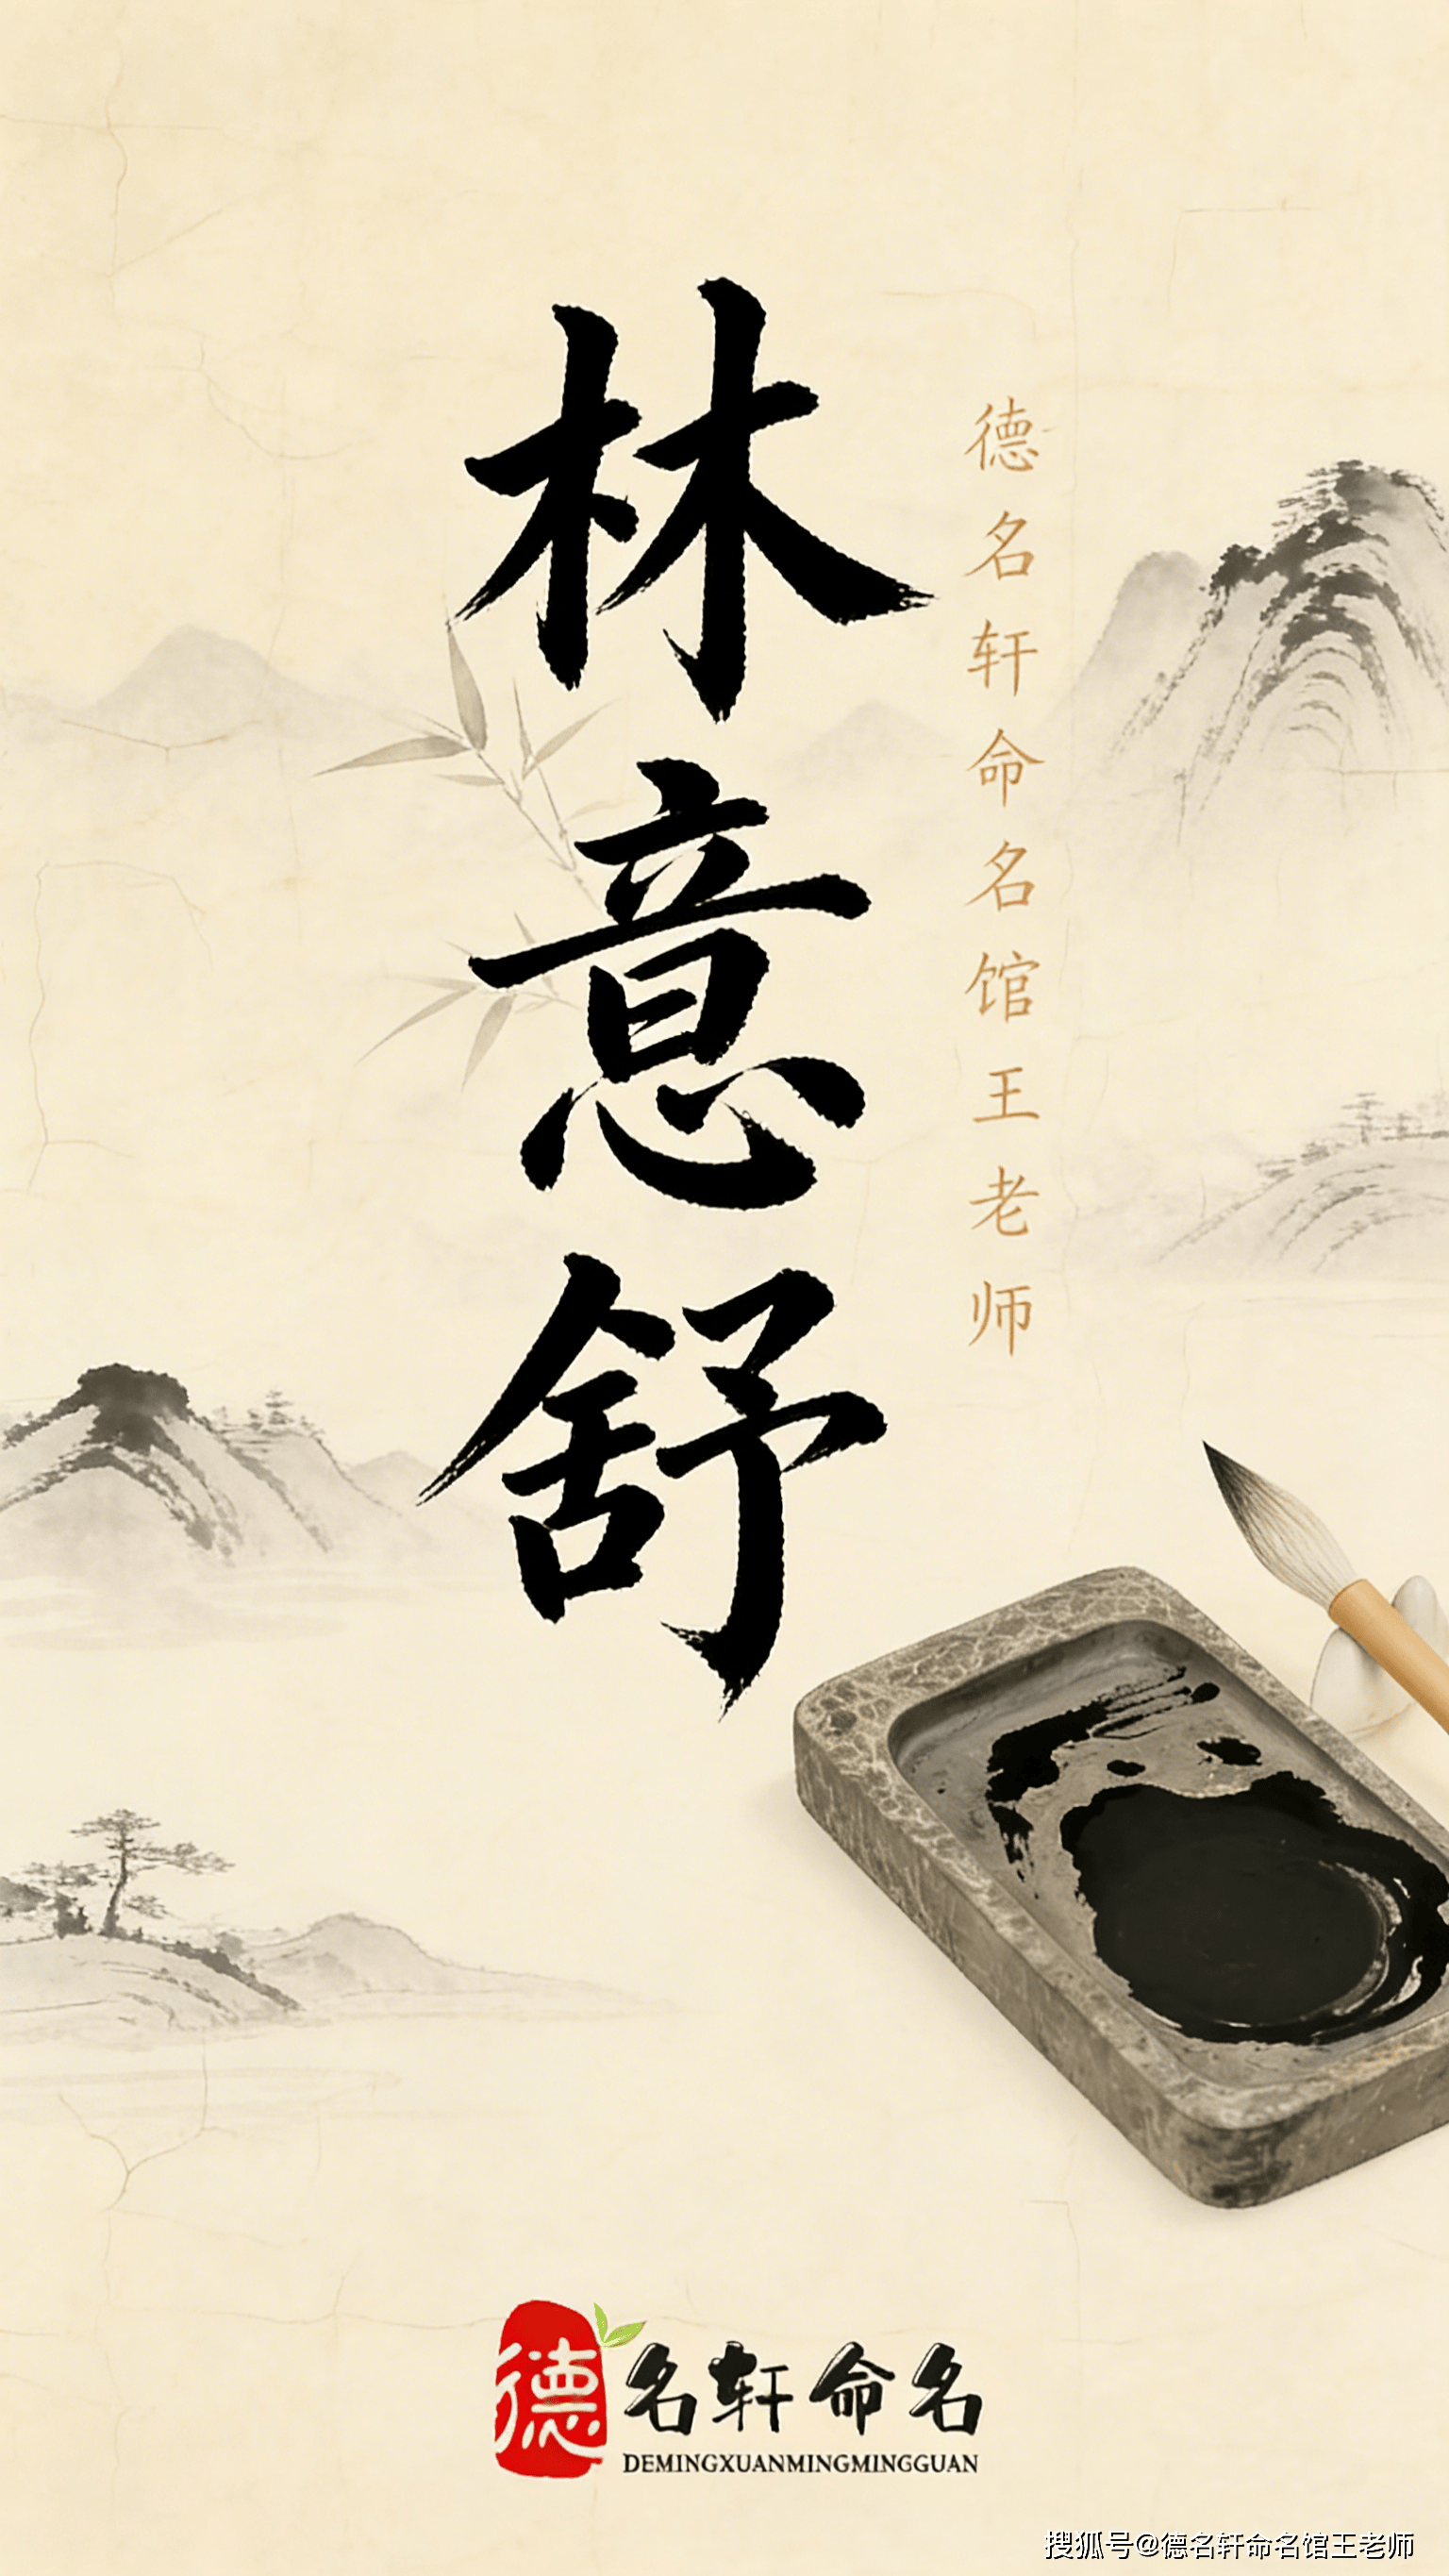 林意舒
德名轩命名馆王老师
德名轩命名
DEMINGXUANMINGMINGGUAN
搜狐号@德名轩命名馆王老师